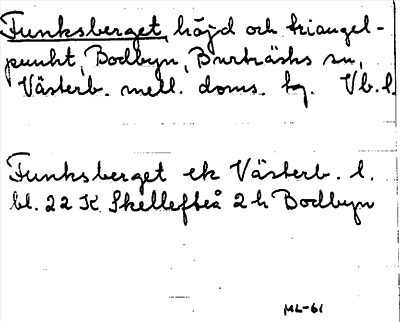 Funksberget, höjd och triangel-
punkt, Bodbyn, Burträsks sn,
Västerb. mell. doms. tg. Vb. l.
Funksberget ek Västerb. l.
bl. 22 K Skellefteå 2 h Bodbyn
ML-61